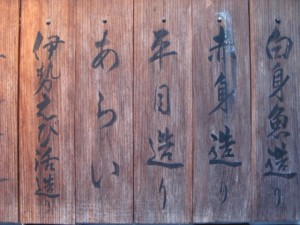 白身魚造り
赤身造り
平目造り
あらい
伊勢えび活造り